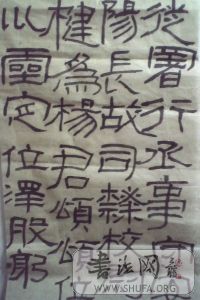 從署行丞事守
陽長故司隸校
楗為楊君頌頌
以靈定位澤股躬
書法网
WWW.SHUFA.ORG